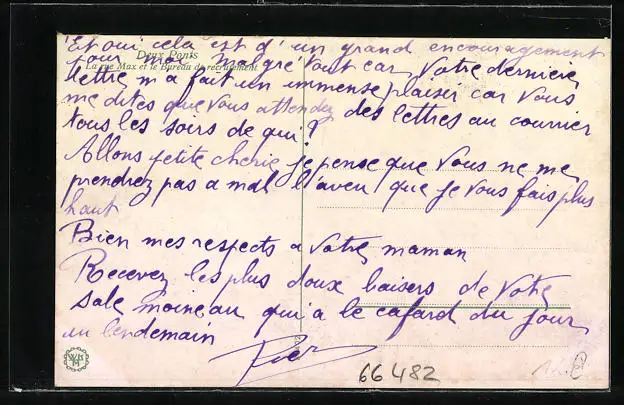 Et oui cela est d'un grand encouragement
Deux Ponts
pour moi malgré tout car votre dernière
La rue Max et le Bureau de recrutement
lettre m'a fait un immense plaisir car vous
me dites que vous attendez des lettres au courrier
tous les soirs de qui ?
Allons petite cherie je pense que vous ne me
prendrez pas a mal l'aveu que je vous fais plus
haut
Bien mes respects a votre maman
Recevez les plus doux baisers de votre
sale moineau qui a le cafard du jour
au lendemain
66482